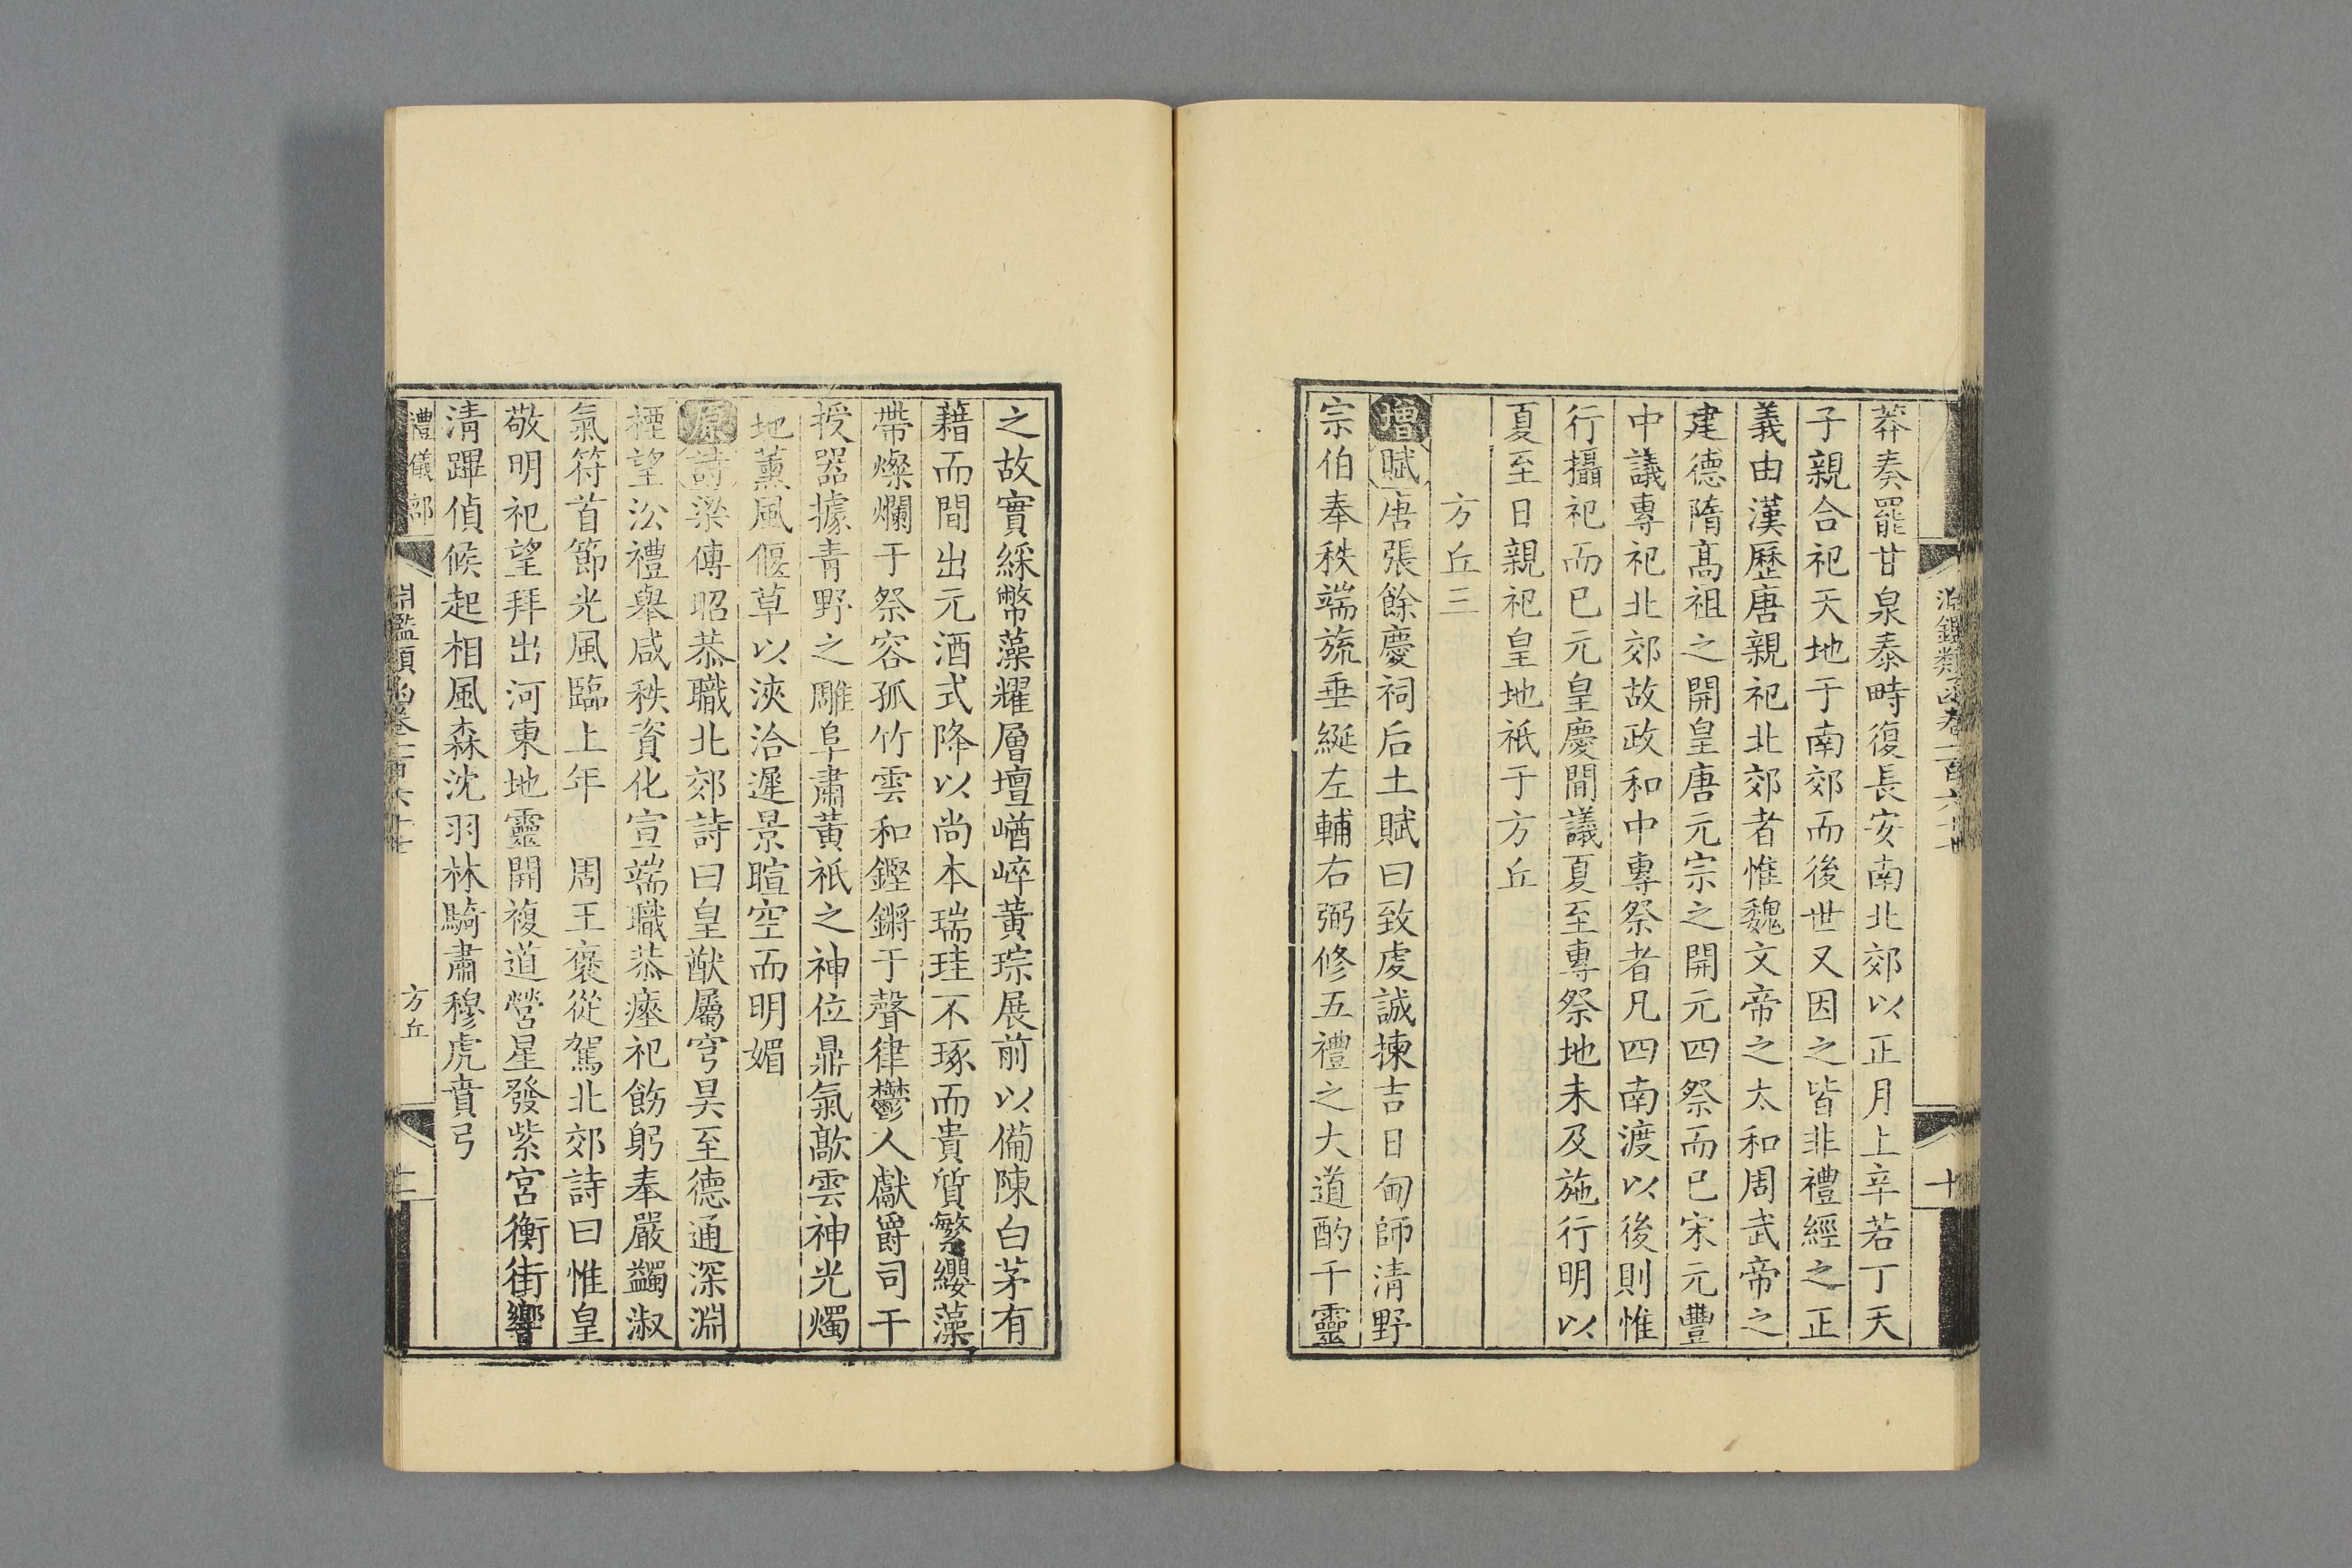 莽奏罷甘泉泰畤復長安南北郊以正月上辛若丁天
子親合祀天地于南郊而後世又因之皆非禮經之正
義由漢歷唐親祀北郊者惟魏文帝之太和周武帝之
建德隋髙祖之開皇唐元宗之開元四祭而已宋元豐
中議專祀北郊故政和中專祭者凡四南渡以後則惟
行攝祀而已元皇慶間議夏至專祭地未及施行明以
夏至日親祀皇地祇于方丘
方丘三
增賦唐張餘慶祠后土賦曰致虔誠揀吉日甸師清野
宗伯奉秩端旒垂綖左輔右弼修五禮之大道酌千靈
之故實綵幣藻耀層壇崷崒黃琮展前以備陳白茅有
藉而間出元酒式降以尚本瑞珪不琢而貴質繁纓藻
帶燦爛于祭容孤竹雲和鏗鏘于聲律鬱人獻爵司干
授器據青野之雕阜肅黃祇之神位鼎氣歊雲神光燭
地薰風偃草以浹洽遲景暄空而明媚
原詩梁傅昭恭職北郊詩曰皇猷屬穹昊至德通深淵
禋望沿禮舉咸秩資化宣端職恭瘞祀飭躬奉嚴蠲淑
氣符首節光風臨上年 周王褒從駕北郊詩曰惟皇
敬明祀望拜出河東地靈開複道營星發紫宮衡街響
清蹕偵候起相風森沈羽林騎肅穆虎賁弓
禮儀部 方丘